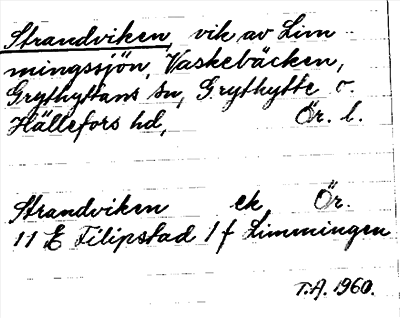 Strandviken, vik av Lim-
mingssjön, Vaskebäcken,
Grythyttans sn, Grythytte o.
Hällefors hd, Ör. l.
Strandviken ek Ör.
11 E Filipstad 1 f Limmingen
T.A. 1960.